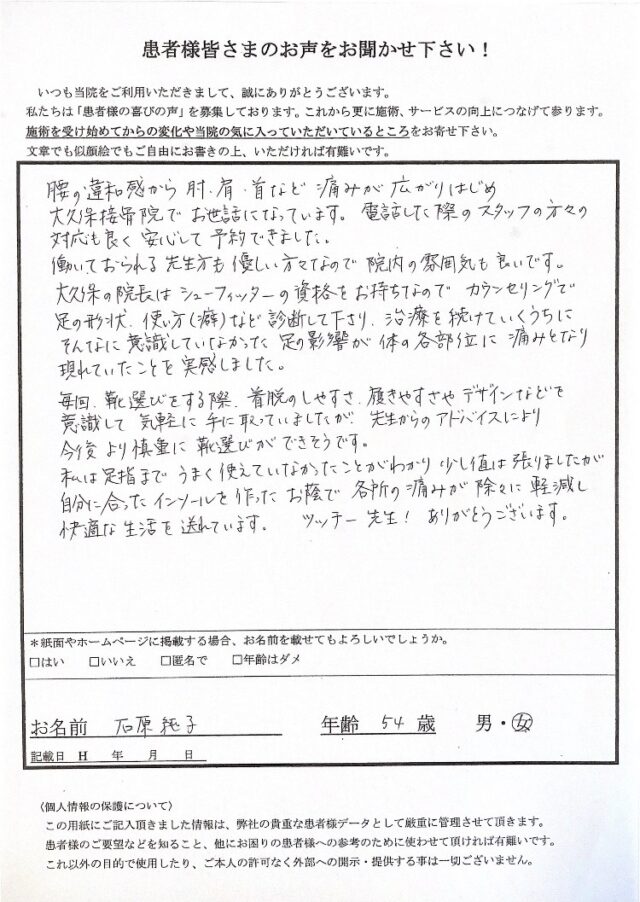 患者様皆さまのお声をお聞かせ下さい！
いつも当院をご利用いただきまして、誠にありがとうございます。
私たちは「患者様の喜びの声」を募集しております。これから更に施術、サービスの向上につなげて参ります。
施術を受け始めてからの変化や当院の気に入っていただいているところをお寄せ下さい。
文章でも似顔絵でもご自由にお書きの上、いただければ有難いです。
腰の違和感から 肘、肩、首など 痛みが 広がりはじめ
大久保接骨院で お世話になっています。電話した際のスタッフの方々の
対応も良く 安心して 予約できました。
働いておられる 先生方も 優しい方々なので 院内の雰囲気も良いです。
大久保の院長は シューフィッターの資格をお持ちなので カウンセリングで
足の形状、使い方(癖)など 診断して下さり、治療を続けていくうちに
そんなに意識していなかった 足の影響が 体の各部位に 痛みとなり
現れていたことを実感しました。
毎回、靴選びをする際、着脱のしやすさ、履きやすさや デザインなどを
意識して 気軽に手に取っていましたが 先生からのアドバイスにより
今後 より慎重に 靴選びができそうです。
私は足指まで うまく使えていなかったことがわかり 少し値は張りましたが
自分に合ったインソールを作ったお蔭で 各所の痛みが 除々に軽減し
快適な生活を送れています。 ツッチー先生！ ありがとうございます。
＊紙面やホームページに掲載する場合、お名前を載せてもよろしいでしょうか。
□はい □いいえ □匿名で □年齢はダメ
お名前 石原 純子 年齢 54 歳 男・女
記載日 H 年 月 日
〈個人情報の保護について〉
この用紙にご記入頂きました情報は、弊社の貴重な患者様データとして厳重に管理させて頂きます。
患者様のご要望などを知ること、他にお困りの患者様への参考のために使わせて頂ければ有難いです。
これ以外の目的で使用したり、ご本人の許可なく外部への開示・提供する事は一切ございません。